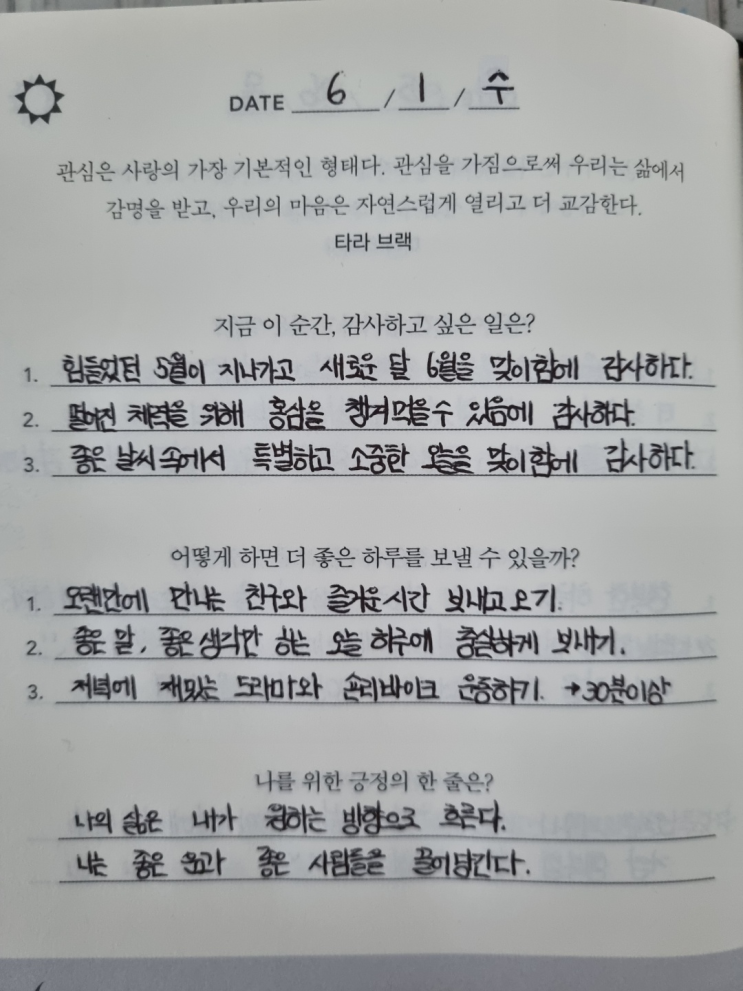 DATE 6 / 1 / 수
관심은 사랑의 가장 기본적인 형태다. 관심을 가짐으로써 우리는 삶에서
감명을 받고, 우리의 마음은 자연스럽게 열리고 더 교감한다.
타라 브랙
지금 이 순간, 감사하고 싶은 일은?
1. 힘들었던 5월이 지나가고 새로운 달 6월을 맞이함에 감사하다.
2. 떨어진 체력을 위해 홍삼을 챙겨먹을 수 있음에 감사하다.
3. 좋은 날씨 속에서 특별하고 소중한 오늘을 맞이함에 감사하다.
어떻게 하면 더 좋은 하루를 보낼 수 있을까?
1. 오랜만에 만나는 친구와 즐거운 시간 보내고 오기.
2. 좋은 말, 좋은 생각만 하는 오늘 하루에 충실하게 보내기.
3. 저녁에 재밌는 드라마와 숀리바이크 운동하기. →30분이상
나를 위한 긍정의 한 줄은?
나의 삶은 내가 원하는 방향으로 흐른다.
나는 좋은 운과 좋은 사람들을 끌어당긴다.